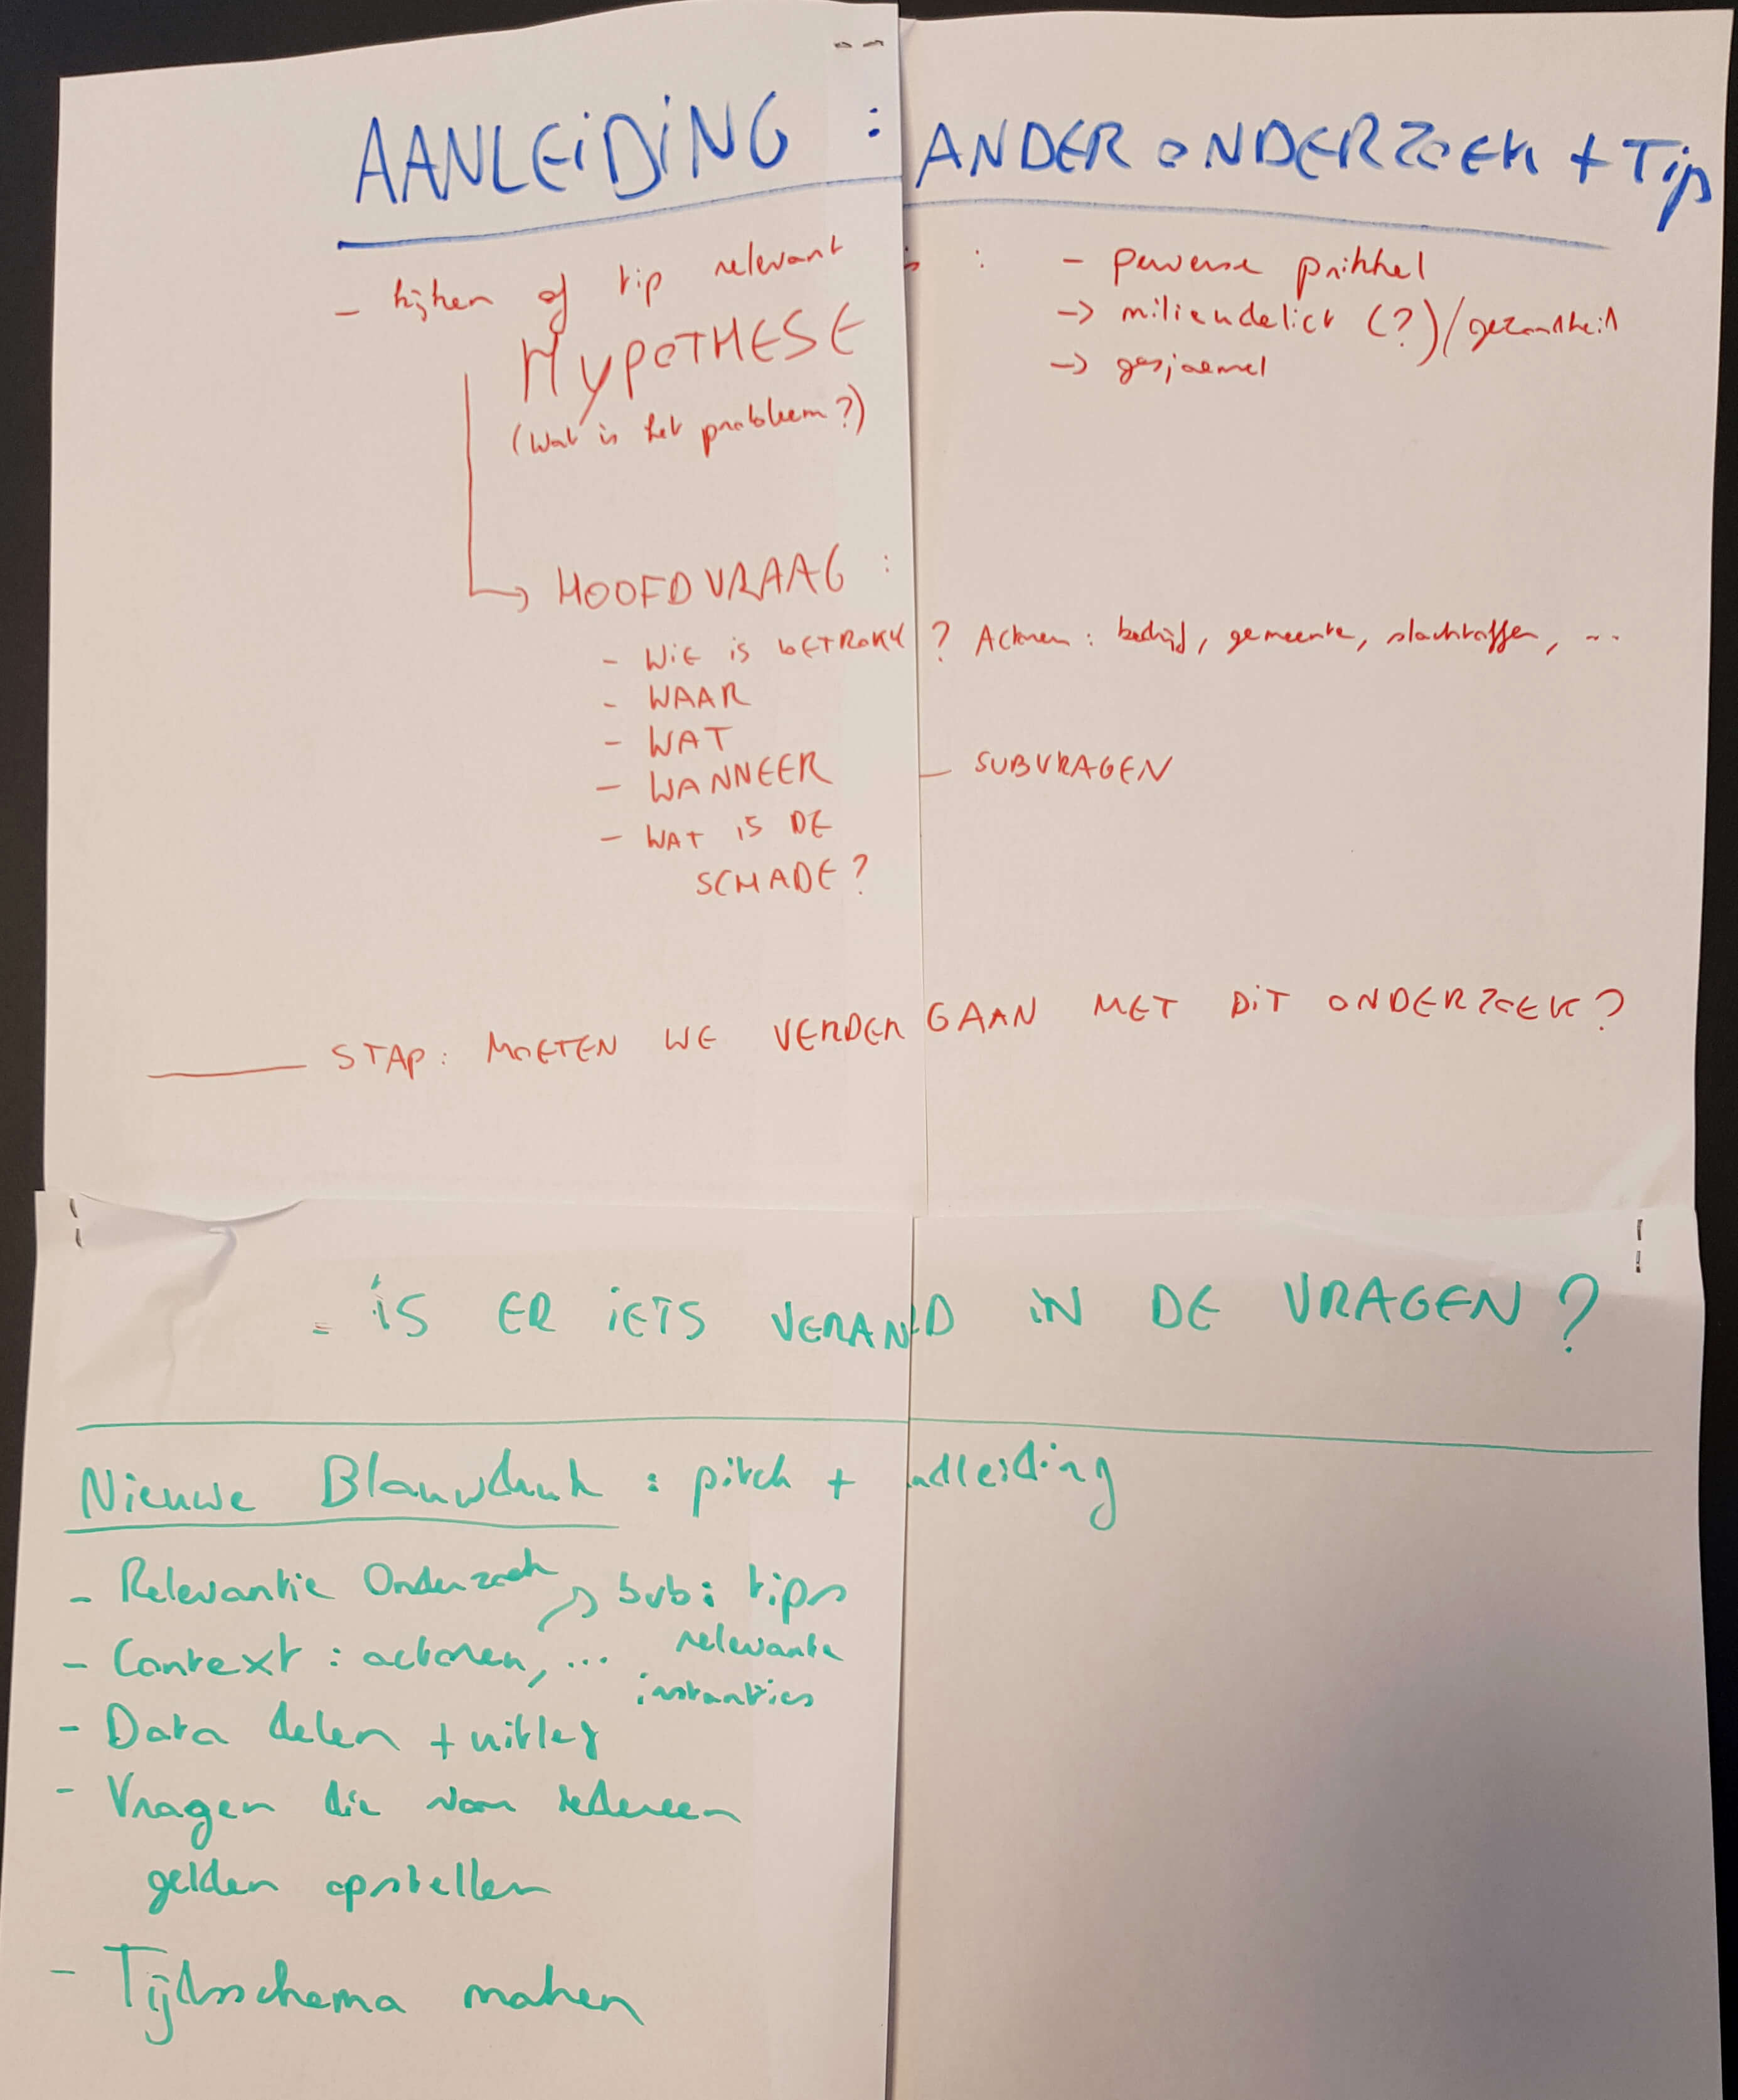 AANLEIDING : ANDER ONDERZOEK + Tip
- kijken of tip relevant is : - perverse prikkel
HYPOTHESE -> milieudelict (?)/gezondheid
(wat is het probleem?) -> gesjoemel
HOOFDVRAAG :
- WIE IS BETROKK ? Actoren : bedrijf, gemeente, slachtoffer, ...
- WAAR
- WAT
- WANNEER - SUBVRAGEN
- WAT IS DE
SCHADE?
STAP: MOETEN WE VERDER GAAN MET DIT ONDERZOEK?
= IS ER IETS VERAND IN DE VRAGEN?
Nieuwe Blauwdruk : pitch + ndleiding
- Relevantie Onderzoek
-> sub: tips
- Context : actoren, ... relevante
instanties
- Data delen + uitleg
- Vragen die voor iedereen
gelden opstellen
- Tijdsschema maken